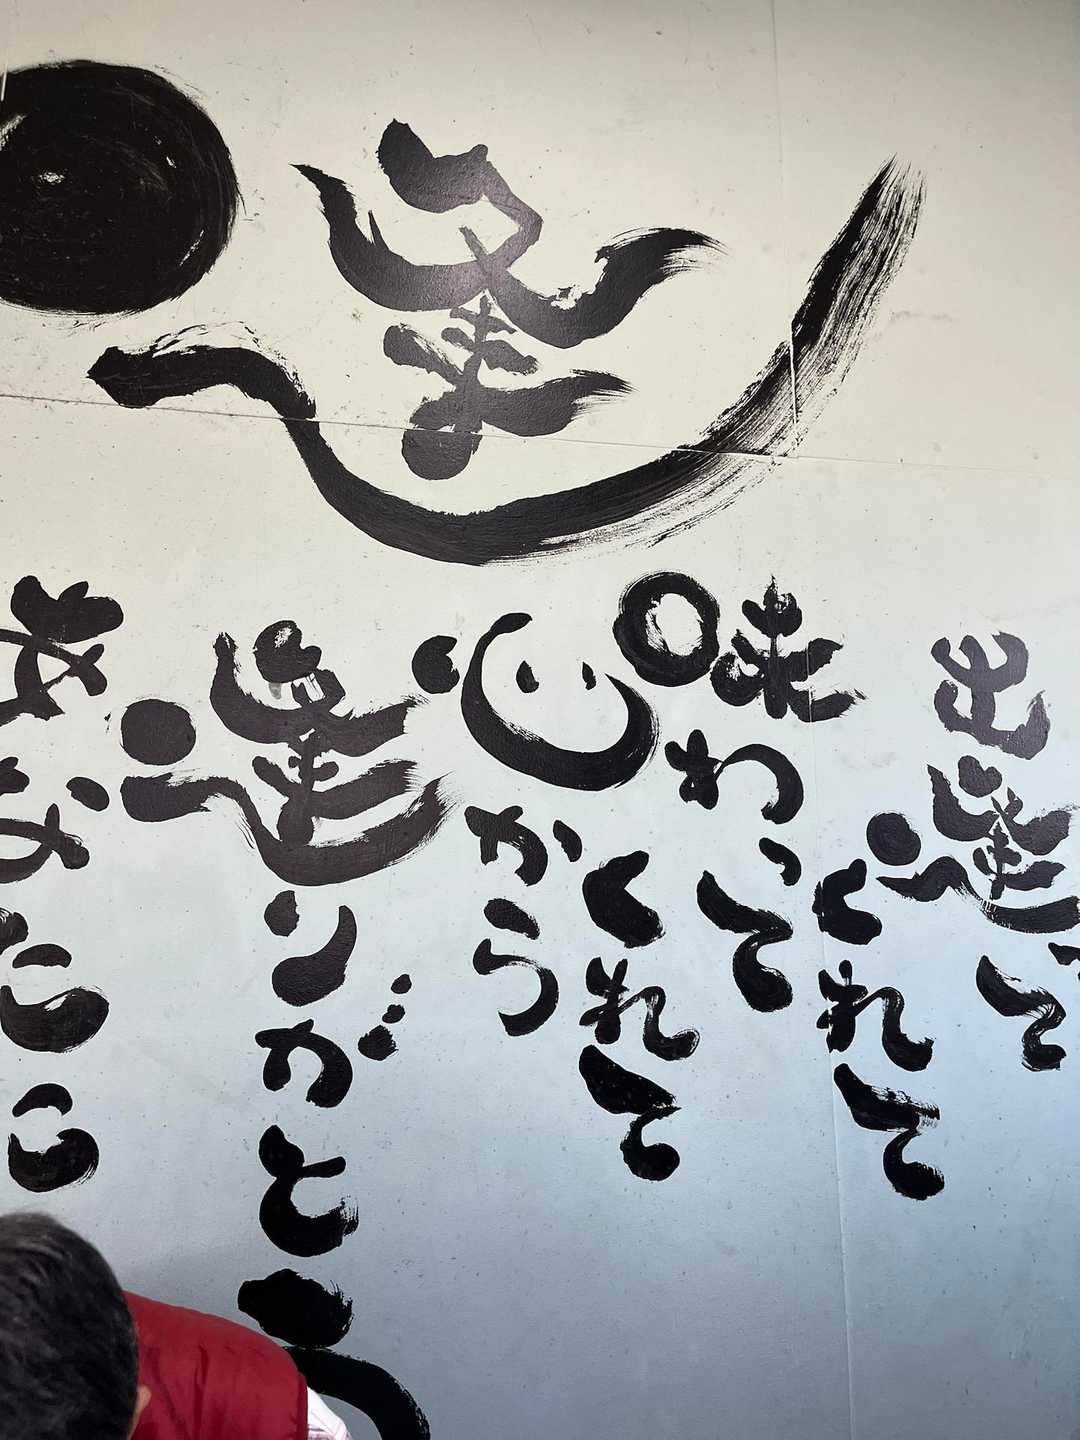 逢
出逢って
くれて
味わって
くれて
心から
逢りがとう
あなたに